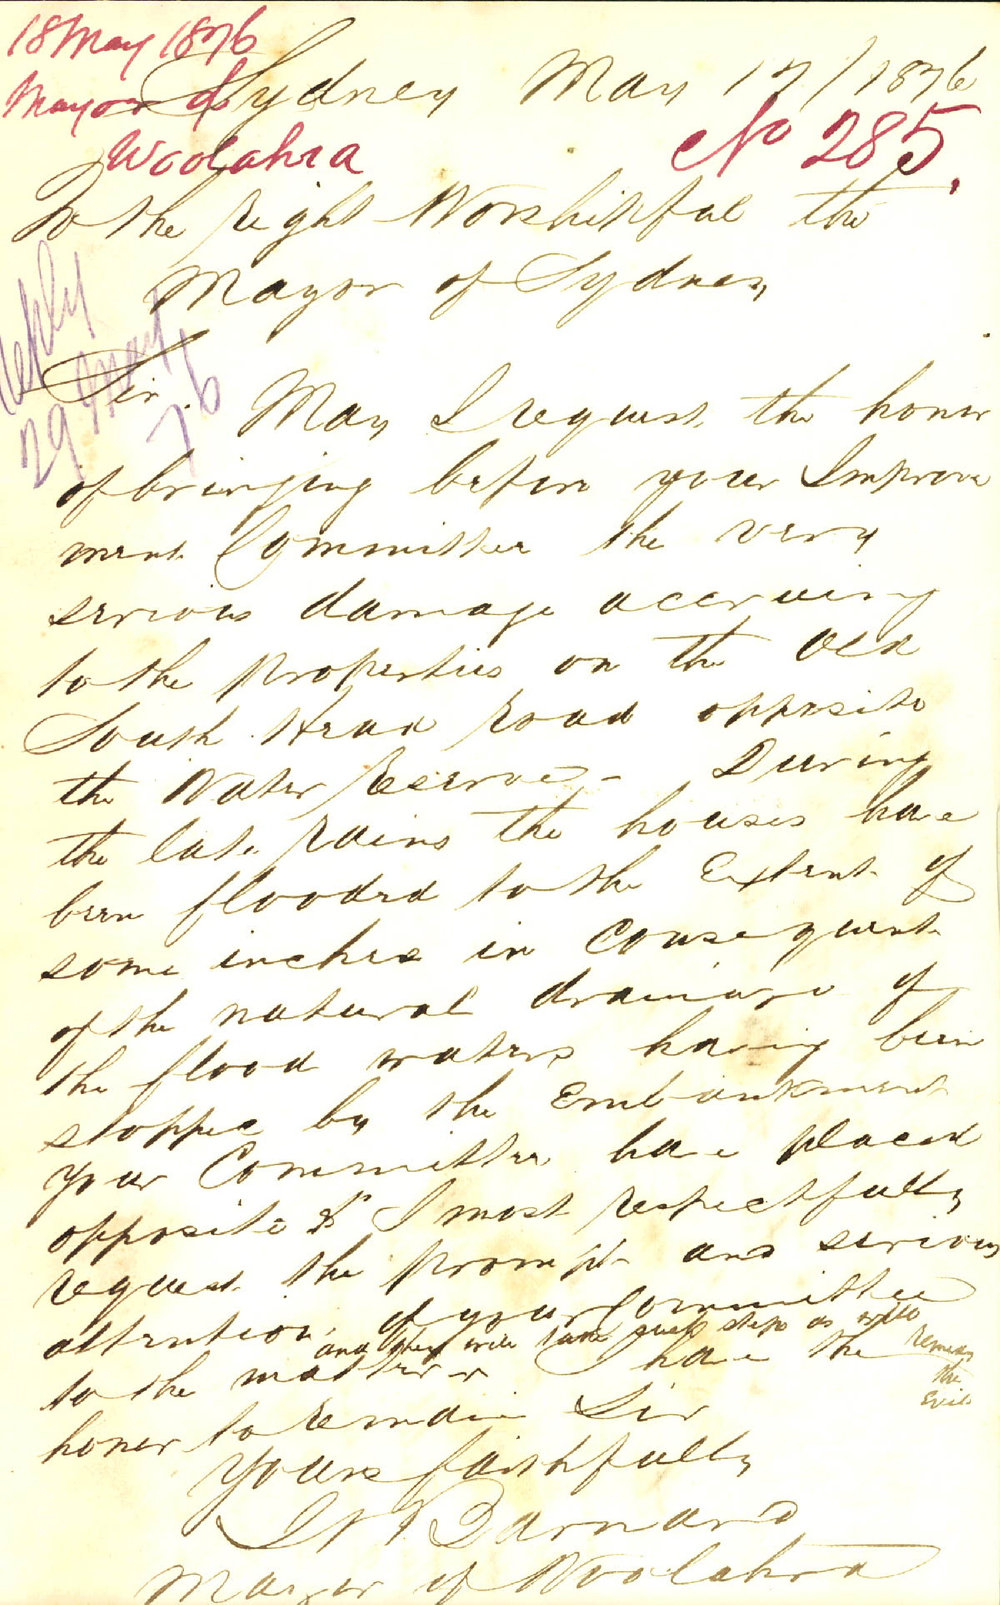 18 May 1876
Mayor of
Woolahra
Sydney May 17/1876
No 285.
To the right Worshipful the
Mayor of Sydney
Reply
29 May
76
Sir.
May I request the honor
of bringing before your Improve
ment Committee the very
serious damage accruing
to the properties on the Old
South Head road opposite
the Water Reserve - During
the late rains the houses have
been flooded to the Extent of
some inches in Consequent
of the natural drainage of
the flood waters having been
stopped by the Embankment
your Committee have placed
opposite & I most respectfully
request the prompt and serious
attention of your Committee
and they will take such steps as will
remedy
the
Evil
to the matter I have the
honor to remain Sir
Yours faithfully
Barnard
Mayor of Woolahra